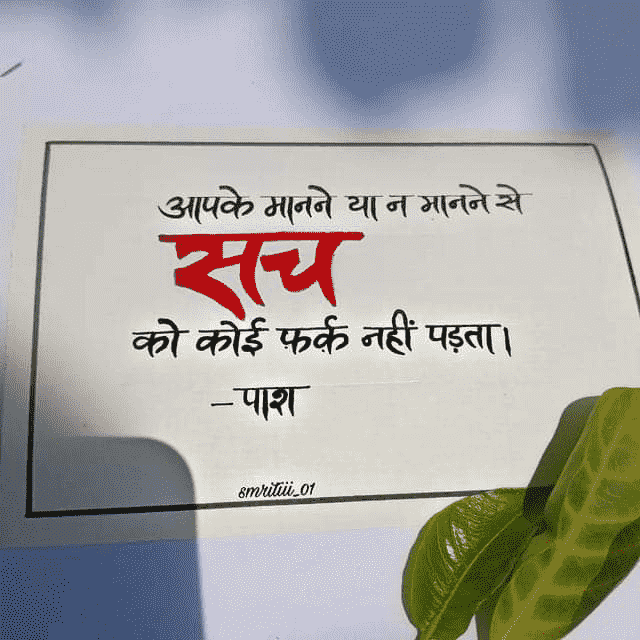 आपके मानने या न मानने से
सच
को कोई फ़र्क़ नहीं पड़ता।
–पाश
smritiii_01